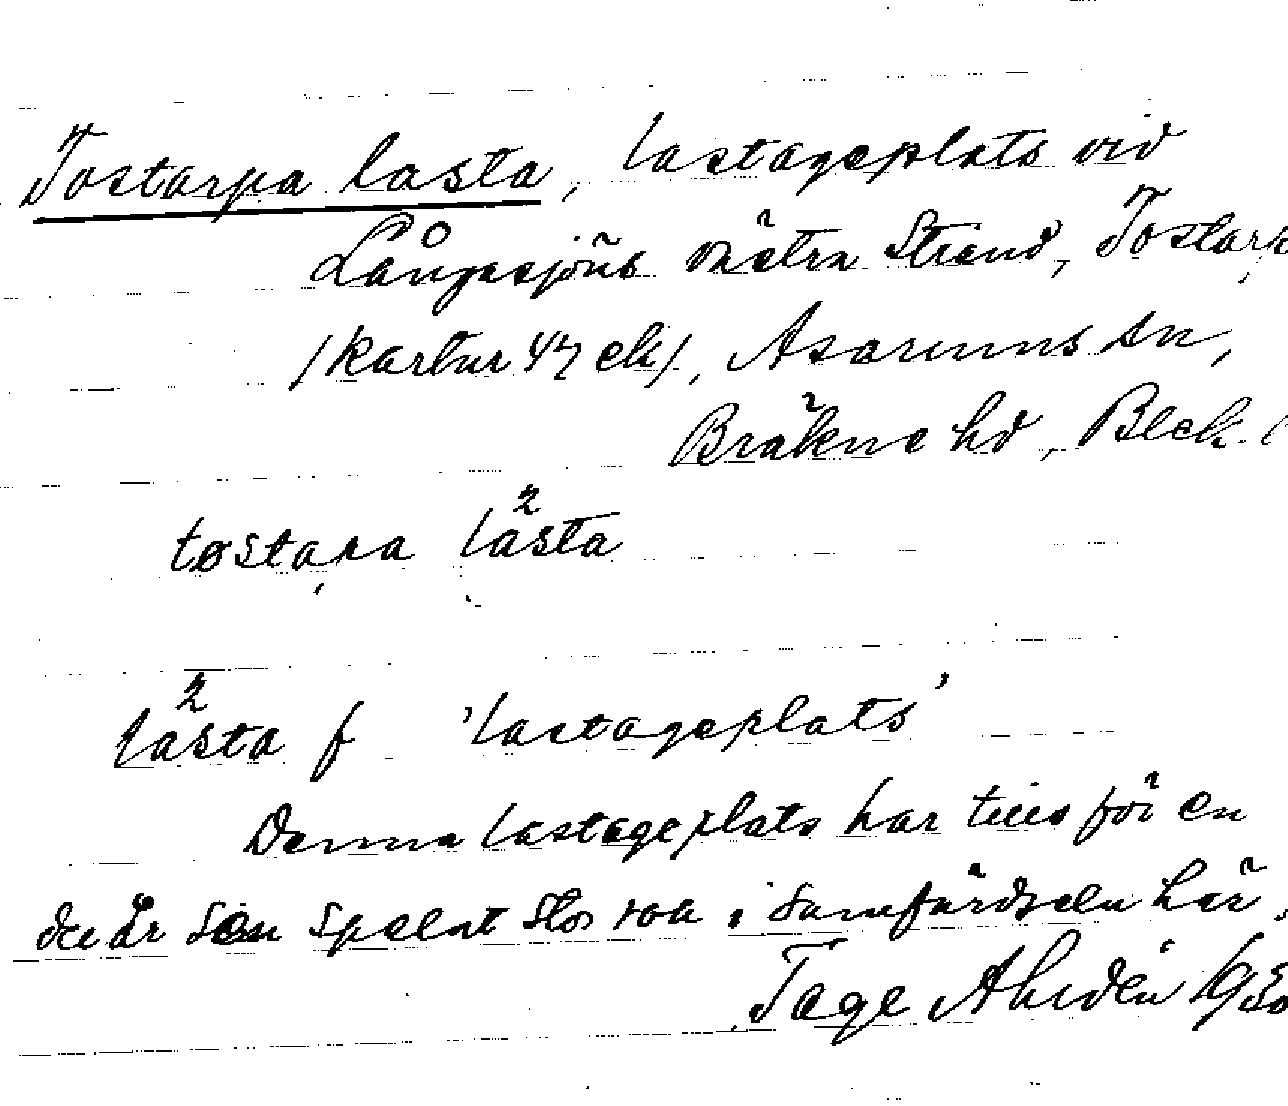 Tostarpa lasta, lastageplats vid
Långasjöns västra strand, Tostarp
/kartur 47 ek/, Asarums sn,
Bräkne hd, Blek. l
tøstaꞃa lasta
lasta f 'lastageplats'
Denna lastageplats har tills för en
del år sen spelat stor roll i samfärdseln här.
Tage Ahldén 1930